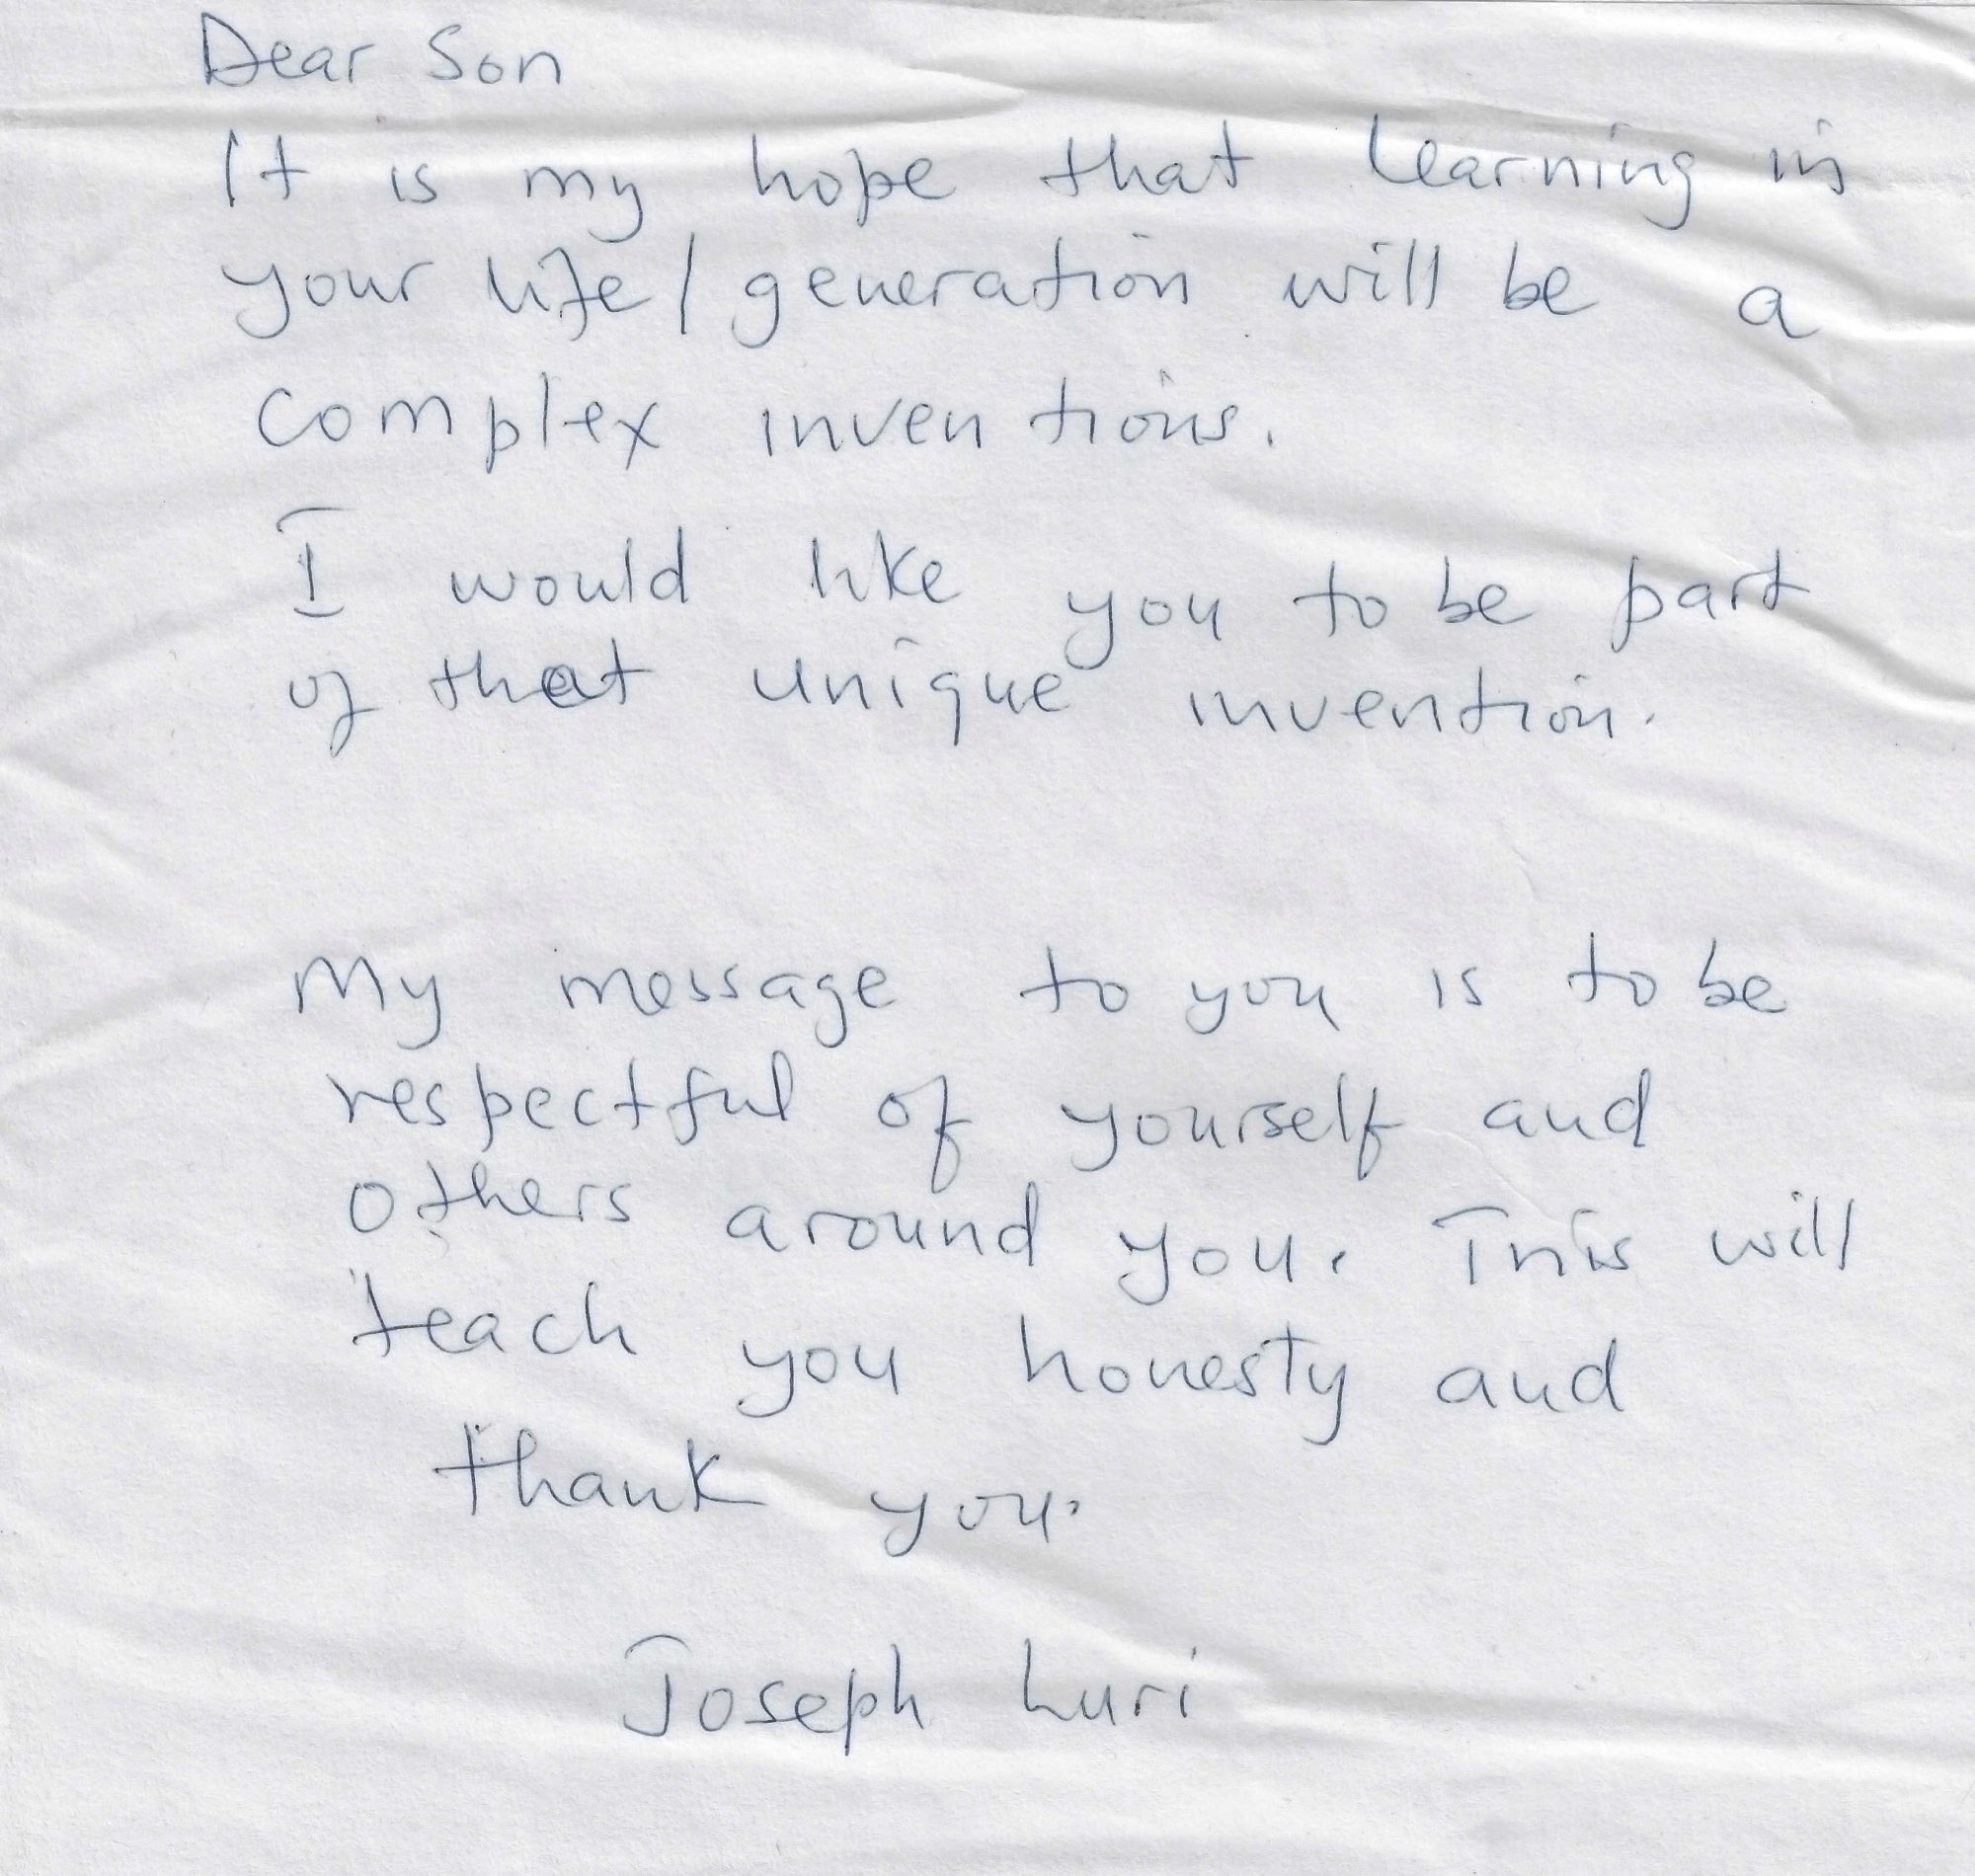 Dear Son
It is my hope that learning in
your life/generation will be a
complex inventions.
I would like you to be part
of that unique invention.
My message to you is to be
respectful of yourself and
others around you. This will
teach you honesty and
thank you.
Joseph Luri